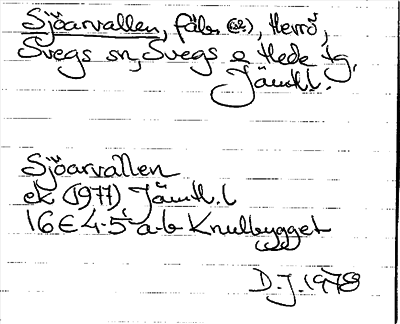 Sjöarvallen, fäb. (bb.), Herrö,
Svegs sn, Svegs o Hede tg,
Jämtl.
Sjöarvallen
ek (1977) Jämtl. l
16E 4-5 a-b Knulbygget
D.J. 1978